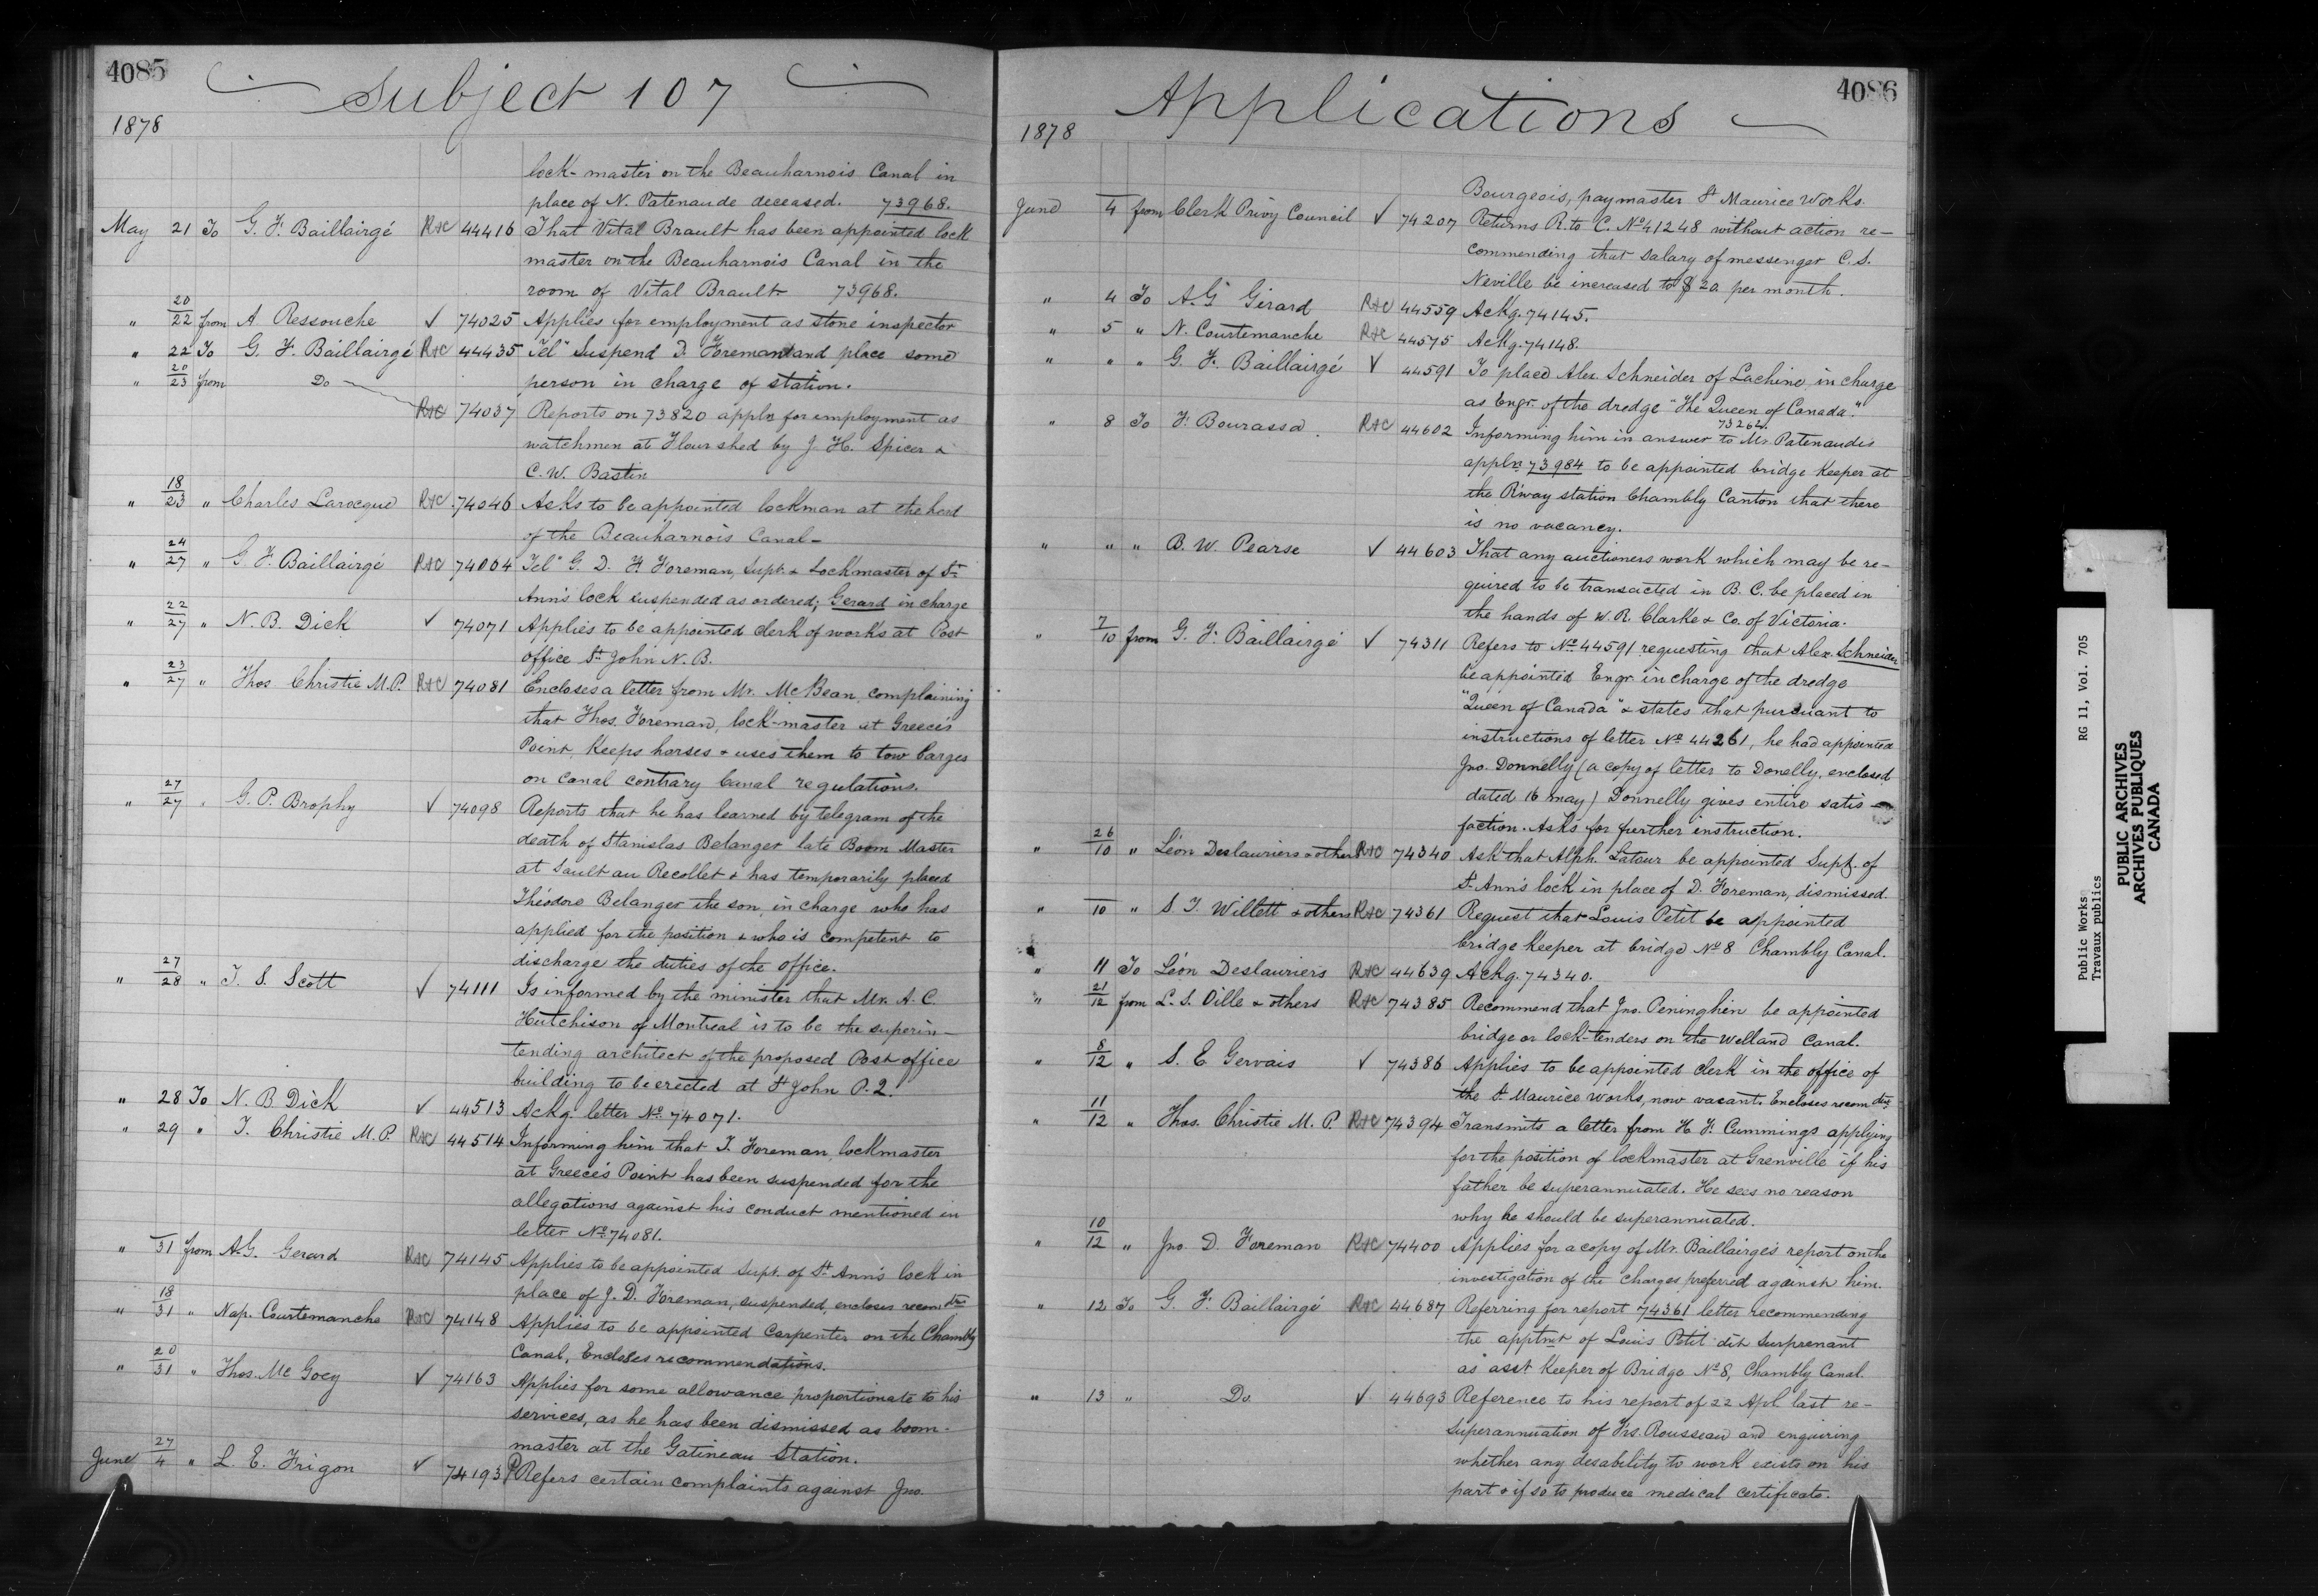 4085
Subject 107
1878
lock-master on the Beauharnois Canal in
place of N. Patenaude deceased. 73968.
May 21 To G. F. Baillairgé R+C 44416 That Vital Brault has been appointed lock
master on the Beauharnois Canal in the
room of Vital Brault 73968.
" 20/22 from A Ressouche ✓ 74025 Applies for employment as stone inspector
" 22 To G. F. Baillairgé R+C 44435 Tel" Suspend D. Foreman and place some
person in charge of station.
" 20/23 from Do
R+C 74037 Reports on 73820 appln for employment as
watchmen at Flour shed by J. H. Spicer &
C. W. Bastin
" 18/23 " Charles Larocque R+C 74046 Asks to be appointed lockman at the head
of the Beauharnois Canal-
" 24/27 " G. F. Baillairgé R+C 74064 Tel" G. D. F. Foreman, Supt. & Lockmaster of St
Ann's lock suspended as ordered; Gerard in charge
" 22/27 " N. B. Dick ✓ 74071 Applies to be appointed clerk of works at Post
office St John N. B.
" 23/27 " Thos. Christie M.P. R+C 74081 Encloses a letter from Mr. McBean, complaining
that Thos. Foreman, lock-master at Greece's
Point, keeps horses & uses them to tow barges
on canal contrary Canal regulations.
" 27/27 " G. P. Brophy ✓ 74098 Reports that he has learned by telegram of the
death of Stanislas Belanger late Boom Master
at Sault au Recollet & has temporarily placed
Théodore Belanger the son, in charge who has
applied for the position & who is competent to
discharge the duties of the office.
" 27/28 " T. S. Scott ✓ 74111 Is informed by the minister that Mr. A. C.
Hutchison of Montreal is to be the superin-
tending architect of the proposed Post office
building to be erected at St John P. Q.
" 28 To N. B. Dick ✓ 44513 Ackg. letter No. 74071.
" 29 " T. Christie M.P. R+C 44514 Informing him that T. Foreman, lockmaster
at Greece's Point has been suspended for the
allegations against his conduct mentioned in
letter No. 74081.
" 31 from A.G. Gerard R+C 74145 Applies to be appointed Supt. of St Ann's lock in
place of J. D. Foreman, suspended, encloses recomdtn
" 18/31 " Nap. Courtemanche R+C 74148 Applies to be appointed Carpenter on the Chambly
Canal, Encloses recommendations.
" 20/31 " Thos. Mc Goey ✓ 74163 Applies for some allowance proportionate to his
services, as he has been dismissed as boom-
master at the Gatineau Station.
June 27/4 " L. E. Frigon ✓ 74193 Refers certain complaints against Jno.
4086
Applications
1878
Bourgeois, paymaster St Maurice Works.
June 4 from Clerk Privy Council ✓ 74207 Returns R. to C. No 41248 without action re-
commending that salary of messenger C. S.
Neville be increased to $20 per month.
" 4 To A. G. Girard R+C 44559 Ackg. 74145.
" 5 " N. Courtemanche R+C 44575 Ackg. 74148.
" " " G. F. Baillairgé ✓ 44591 To place Alex. Schneider of Lachine, in charge
as Engr. of the dredge "The Queen of Canada."
73262.
" 8 To F. Bourassa. R+C 44602 Informing him in answer to Mr. Patenaude's
appln. 73984 to be appointed bridge keeper at
the R'way station Chambly Canton that there
is no vacancy.
" " " B. W. Pearse ✓ 44603 That any auctioners work which may be re-
quired to be transacted in B. C. be placed in
the hands of W. R. Clarke & Co. of Victoria.
" 7/10 from G. F. Baillairgé ✓ 74311 Refers to No 44591 requesting that Alex. Schneider
be appointed Engr. in charge of the dredge
"Queen of Canada" & states that pursuant to
instructions of letter No 44261, he had appointed
Jno. Donnelly (a copy of letter to Donelly, enclosed
dated 16 may) Donnelly gives entire satis-
faction. Asks for further instruction.
" 26/10 " Léon Deslauriers & others R+C 74340 Ask that Alph. Latour be appointed Supt. of
St. Ann's lock in place of D. Foreman, dismissed.
" 10 " S. T. Willett & others R+C 74361 Request that Louis Petit be appointed
bridge keeper at bridge No 8 Chambly Canal.
" 11 To Léon Deslauriers R+C 44639 Ackg. 74340.
" 21/12 from L. S. Oille & others R+C 74385 Recommend that Jno. Peninghen be appointed
bridge or lock-tenders on the Welland Canal.
" 8/12 " S. E. Gervais ✓ 74386 Applies to be appointed clerk in the office of
the St. Maurice works, now vacant. Encloses recomdtn
" 11/12 " Thos. Christie M. P. R+C 74394 Transmits a letter from H. F. Cummings applying
for the position of lockmaster at Grenville if his
father be superannuated. He sees no reason
why he should be superannuated.
" 10/12 " Jno. D. Foreman R+C 74400 Applies for a copy of Mr. Baillairgé's report on the
investigation of the charges preferred against him.
" 12 To G. F. Baillairgé R+C 44687 Referring for report 74361 letter recommending
the apptmt of Louis Petit dit Surprenant
as asst keeper of Bridge No 8, Chambly Canal.
" 13 " Do. ✓ 44693 Reference to his report of 22 Apl last re-
superannuation of Frs. Rousseau and enquiring
whether any desability to work exists on his
part & if so to produce medical certificate.
Public Works RG 11, Vol. 705
Travaux publics
PUBLIC ARCHIVES
ARCHIVES PUBLIQUES
CANADA